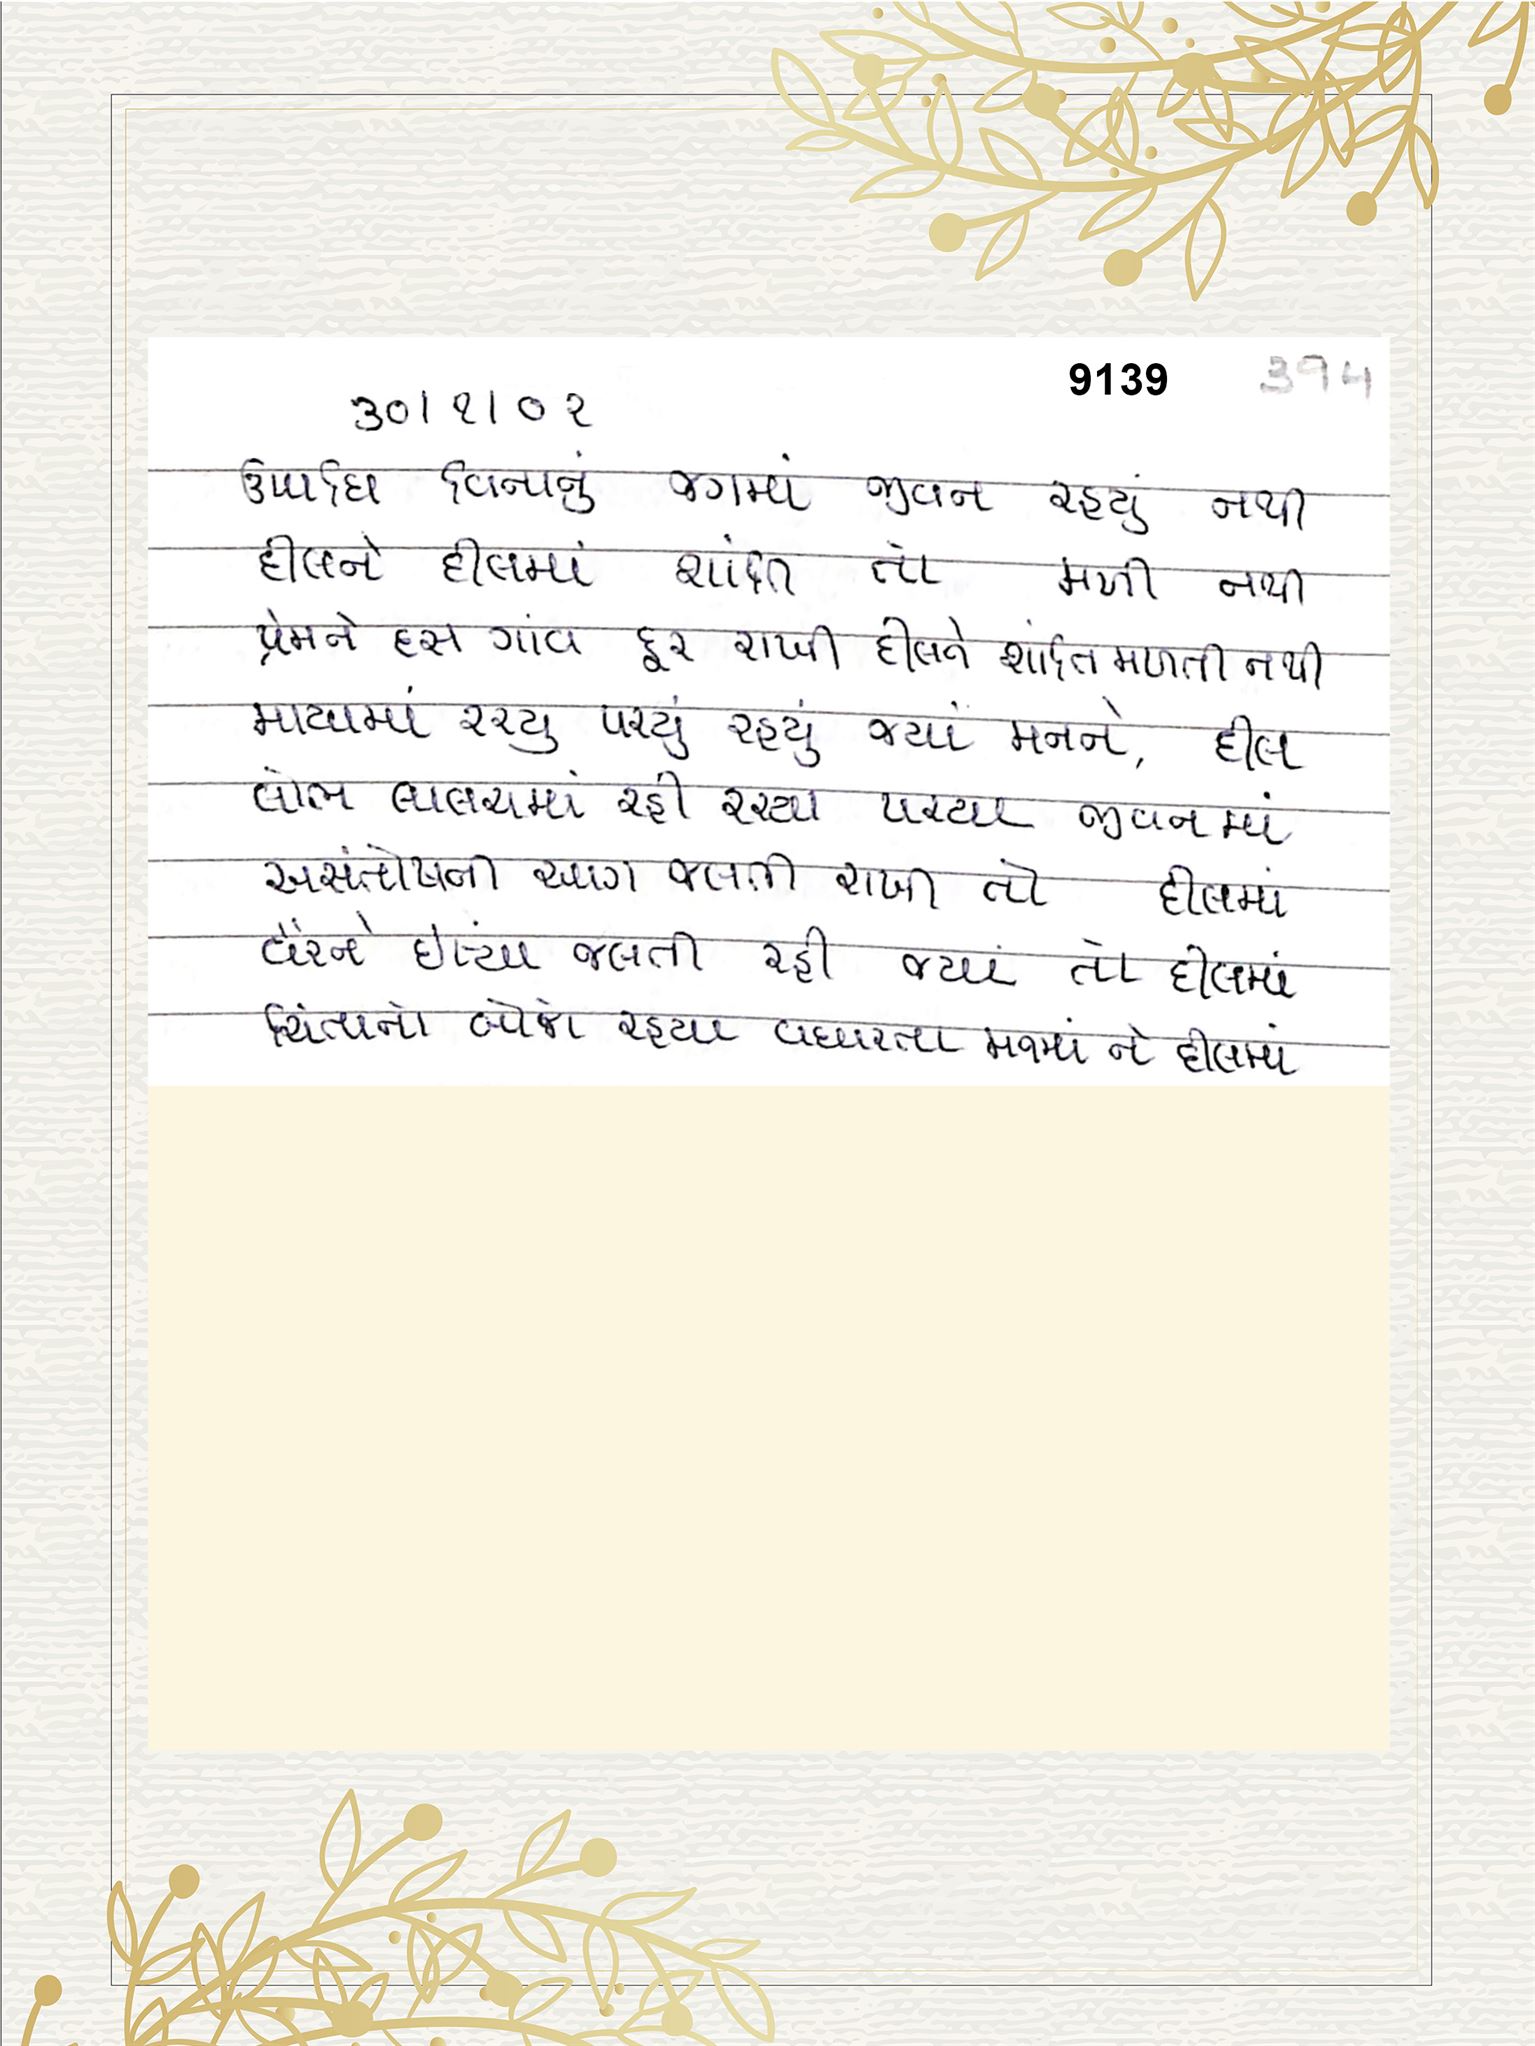 9139 394
30/1/02
ઉપાધિ વિનાનું જગમાં જીવન રહ્યું નથી
દીલને દીલમાં શાંતિ તો મળી નથી
પ્રેમને હસ ગાંવ દૂર રાખી દીલને શાંતિ મળતી નથી
માયામાં રચ્યુ પચ્યું રહ્યું જ્યાં મનને, દીલ
લોભ લાલચમાં રહી રચ્યા પચ્યા જીવનમાં
અસંતોષની આગ જલતી રાખી તો દીલમાં
વૈરને ઈર્ષ્યા જલતી રહી જ્યાં તો દીલમાં
ચિંતાનો બોજો રહ્યા વધારતા મનમાં ને દીલમાં